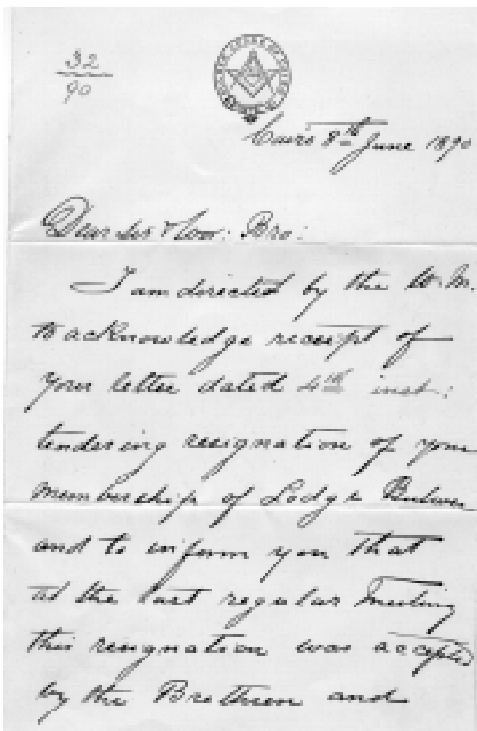 32
90
Cairo 8th June 1890
Dear Sir & Wor: Bro:
I am directed by the W. M.
to acknowledge receipt of
your letter dated 4th inst:
tendering resignation of your
membership of Lodge Bulwer
and to inform you that
at the last regular Meeting
this resignation was accepted
by the Brethren and